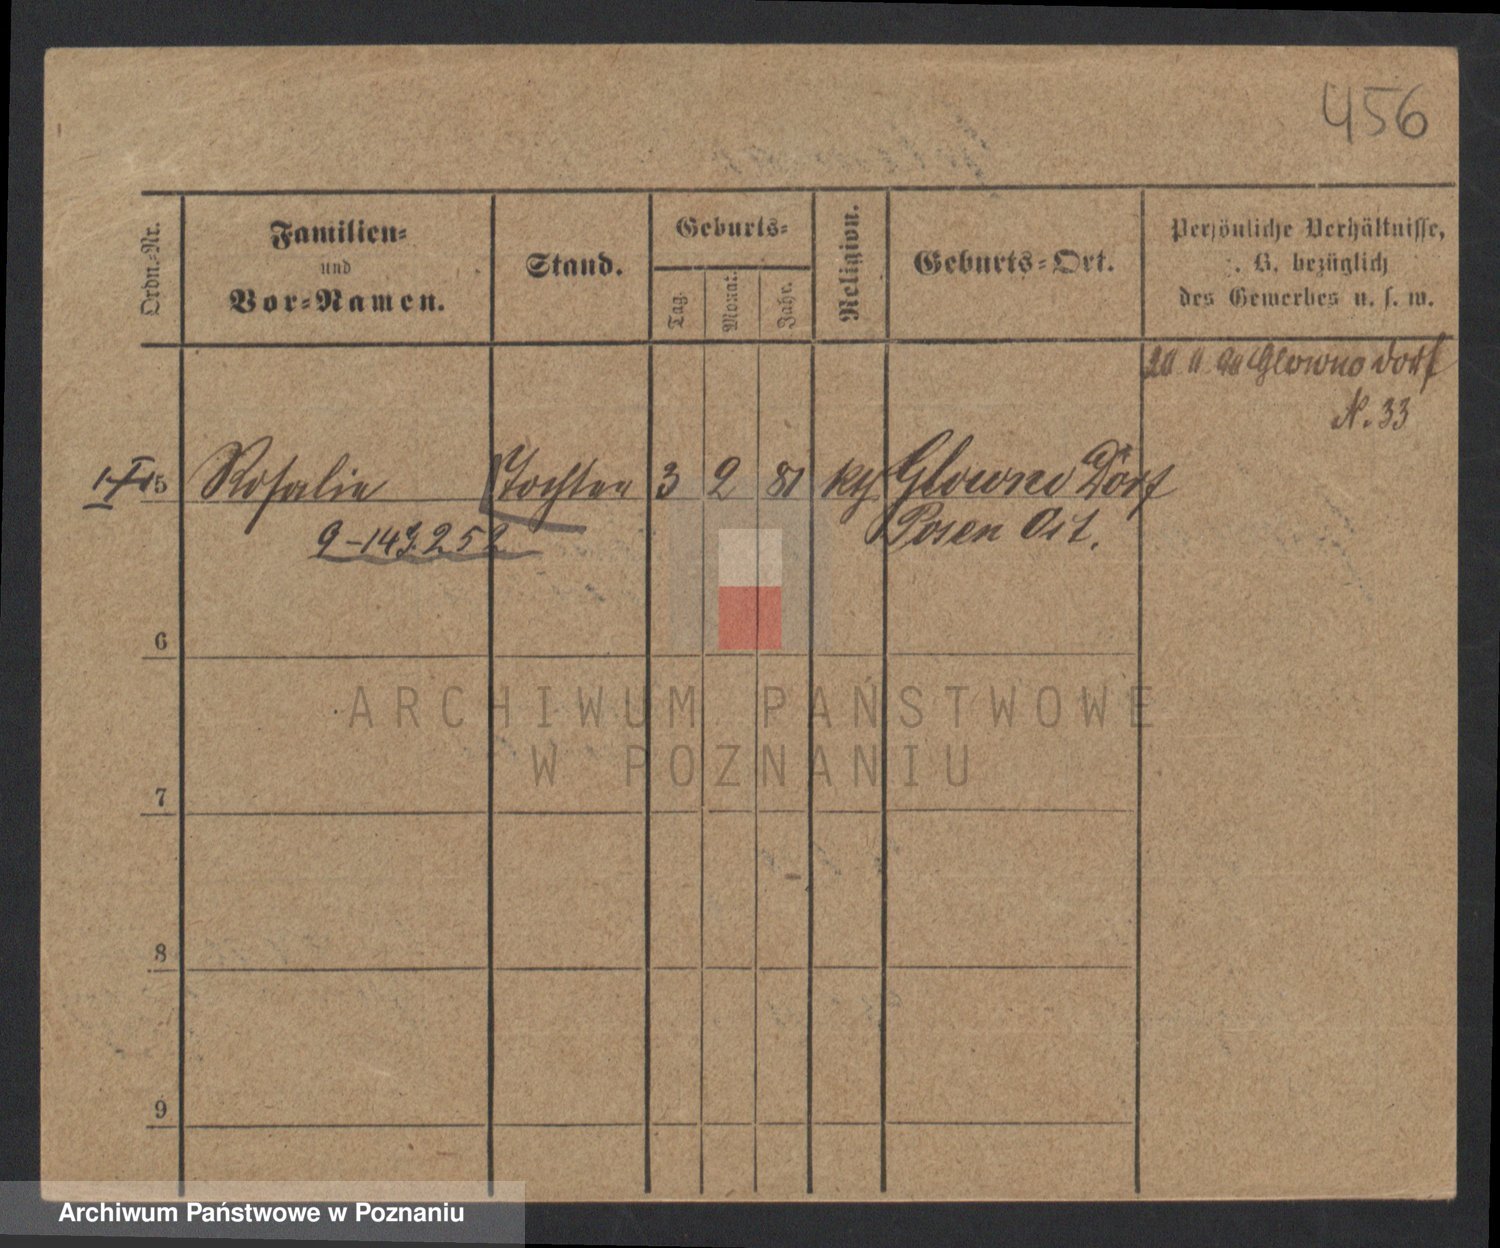 456
Ordn.-Nr.
Familien-
und
Vor-Namen.
Stand.
Geburts-
Tag.
Monat.
Jahr.
Religion.
Geburts-Ort.
Persönliche Verhältnisse,
. B. bezüglich
des Gewerbes u. s. w.
Glowno dorf
N. 33
5 Rosalie Tochter 3 2 81 kth Glowno Dorf
Posen Ost.
6
7
8
9
ARCHIWUM PAŃSTWOWE
W POZNANIU
Archiwum Państwowe w Poznaniu